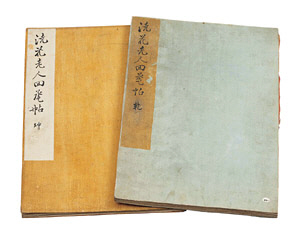 浣花老人四帖 坤
浣花老人四帖 乾